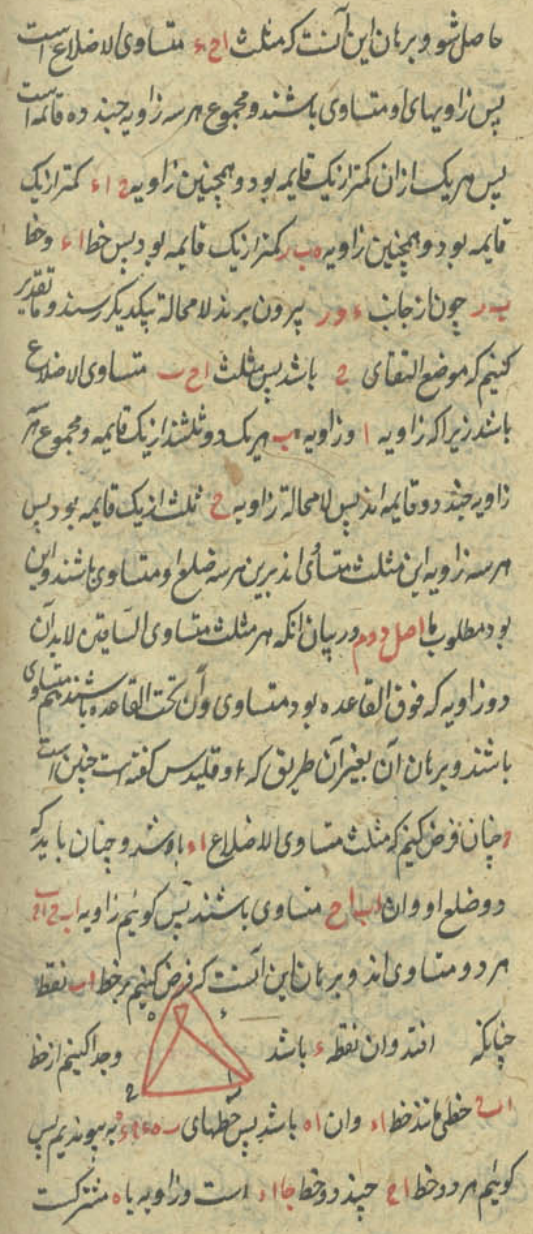 حاصل شود و برهان این آنست که مثلث ا ح ء متساوی الاضلاع است
پس زاویهای او متساوی باشند و مجموع هر سه زاویه چند دو قائمه است
پس هر یک از ان کمتر از یک قایمه بود و همچنین زاویه ح ا ء کمتر از یک
قایمه بود و همچنین زاویه ه ب ر کمتر از یک قایمه بود پس خط ا ء و خط
ب ر چون از جانب ء و ر بیرون برند لا محالة بیکدیکر رسند و ما تقدیر
کنیم که موضع التقای ح باشد پس مثلث ا ح ب متساوی الاضلاع
باشد زیرا که زاویه ا و زاویه ب هر یک دو ثلثند از یک قایمه و مجموع هر
زاویه چند دو قایمه اند پس لا محالة زاویه ح ثلث از یک قایمه بود پس
هر سه زاویه این مثلث متساوی اند برین هر سه ضلع او متساوی باشند و این
بود مطلوب ما اصل دوم در بیان انکه هر مثلث متساوی الساقین لابد آن
دو زاویه که فوق القاعده بود متساوی و آن تحت القاعده باشند هم متساوی
باشند و برهان آن بغیر آن طریق که اوقلیدس کفته است چنین است
چنان فرض کنیم که مثلث متساوی الاضلاع ا ء باشد و چنان باید که
دو ضلع او و ان ا ب ا ح متساوی باشند پس کوئیم زاویه
هر دو متساوی اند و برهان این آنست که فرض کنیم بر خط ا ب نقطه
چنانکه افتد وان نقطه ء باشد و جدا کنیم از خط
ا ح خطی مانند خط ا ء وان ا ه باشد پس خطهای به پیوندیم پس
کوئیم هر دو خط ا ح چند دو خط است و زاویه با ه مشترکست